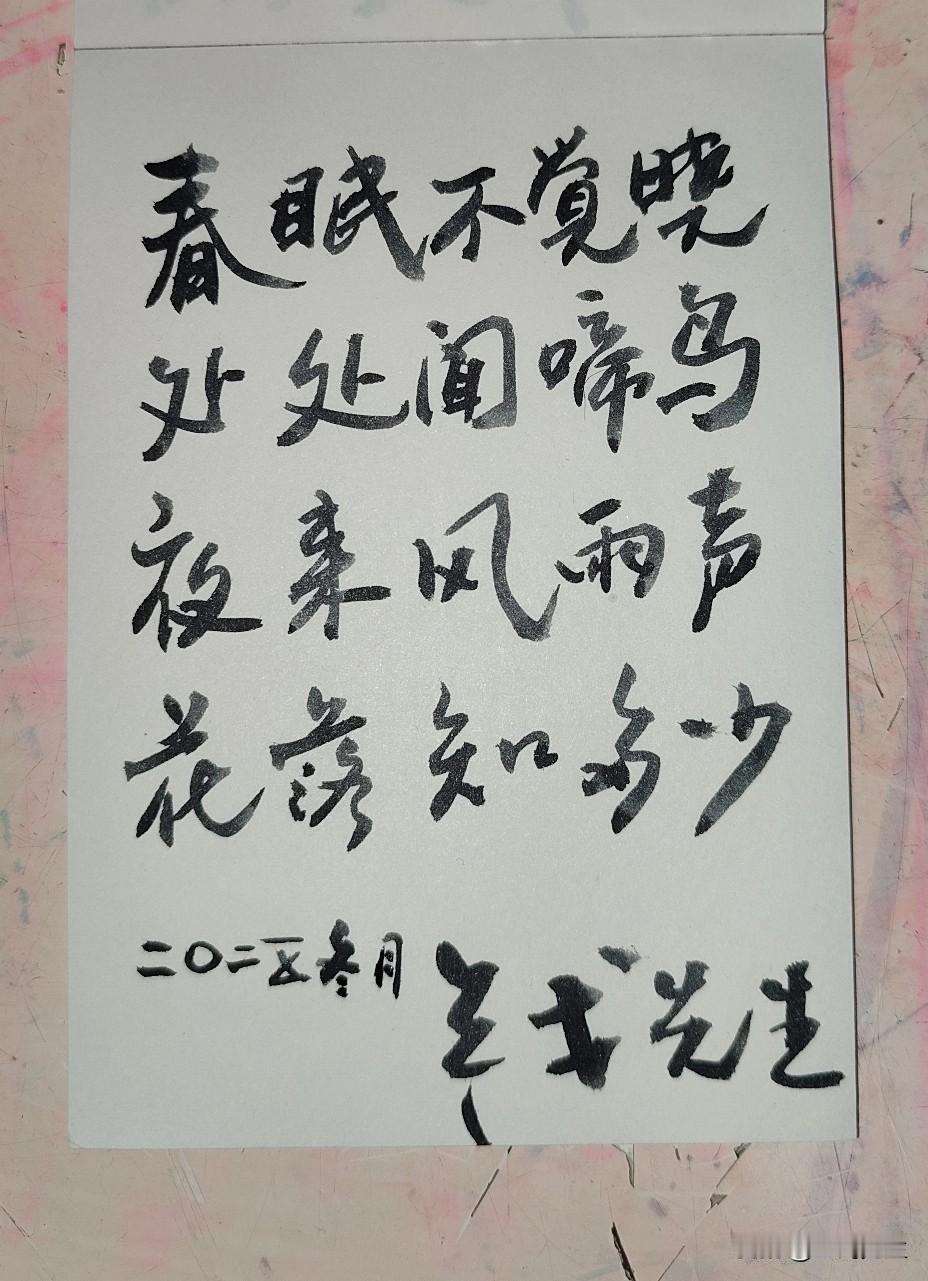 春眠不觉晓
处处闻啼鸟
夜来风雨声
花落知多少
二〇二五冬月
戈先生